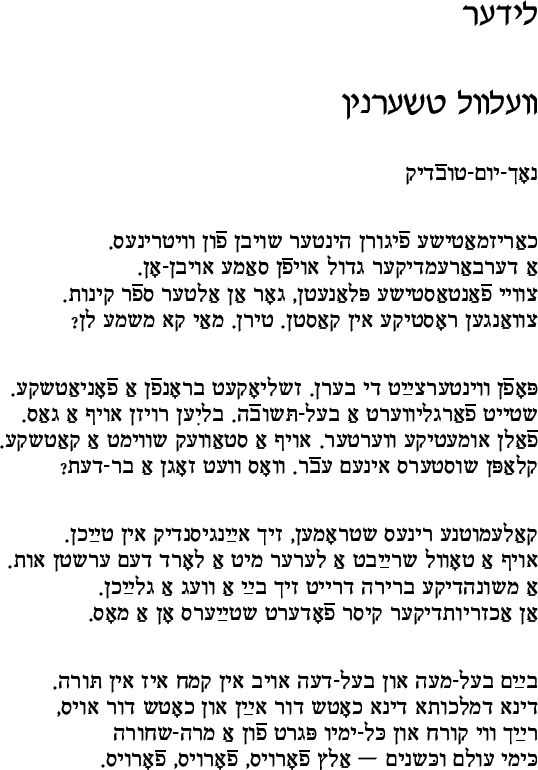 לידער
וועלוול טשערנין
נאָך-יום-טובֿדיק
כאַריזמאַטישע פֿיגורן הינטער שויבן פֿון וויטרינעס.
אַ דערבאַרעמדיקער גדול אויפֿן סאַמע אויבן-אָן.
צוויי פֿאַנטאַסטישע פּלאַנעטן, גאָר אַן אַלטער ספֿר קינות.
צוואַנגען ראָסטיקע אין קאַסטן. טירן. מאַי קא משמע לן?
פּאָפֿן ווינטערצײַט די בערן. זשליאָקעט בראָנפֿן אַ פֿאָניאַטשקע.
שטייט פֿאַרגליווערט אַ בעל-תּשובֿה. בליִען רויזן אויף אַ גאַס.
פֿאַלן אומעטיקע ווערטער. אויף אַ סטאַוועק שווימט אַ קאַטשקע.
קלאַפּן שוסטערס אינעם עבֿר. וואָס וועט זאָגן אַ בר-דעת?
קאַלעמוטנע רינעס שטראָמען, זיך אײַנגיסנדיק אין טײַכן.
אויף אַ טאָוול שרײַבט אַ לערער מיט אַ לאָרד דעם ערשטן אות.
אַ משונהדיקע ברירה דרייט זיך בײַ אַ וועג אַ גלײַכן.
אַן אַכזריותדיקער קיסר פֿאָדערט שטײַערס אָן אַ מאָס.
בײַם בעל-מעה און בעל-דעה אויב אין קמח איז אין תּורה.
דינא דמלכותא דינא כאָטש דור אײַן און כאָטש דור אויס,
רײַך ווי קורח און כּל-ימיו פּגרט פֿון אַ מרה-שחורה
כּימי עולם וכּשנים — אַלץ פֿאָרויס, פֿאָרויס, פֿאָרויס.